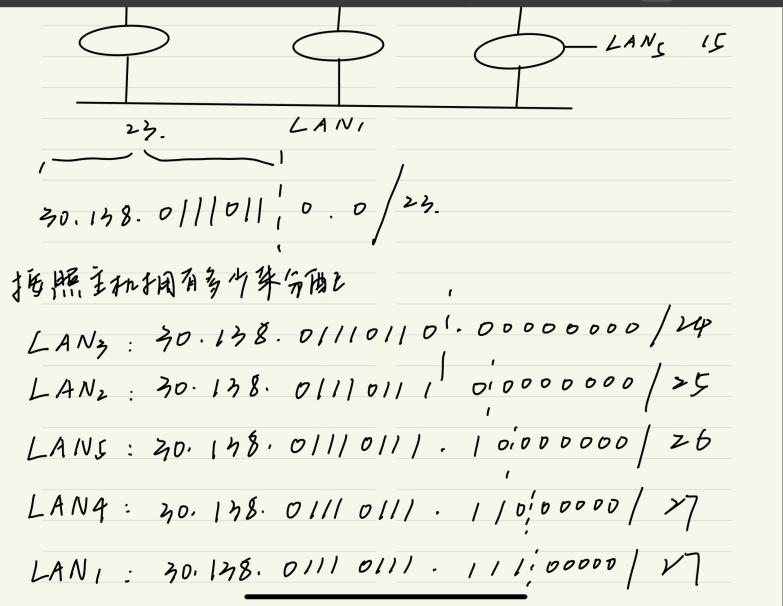 LAN5 15
23. LAN1
30.138.0111011 0.0/23.
按照主机拥有多少来分配
LAN3: 30.138.01110110.00000000/24
LAN2: 30.138.01110111 00000000/25
LAN5: 30.138.01110111.10000000/26
LAN4: 30.138.01110111.11000000/27
LAN1: 30.138.01110111.11100000/27